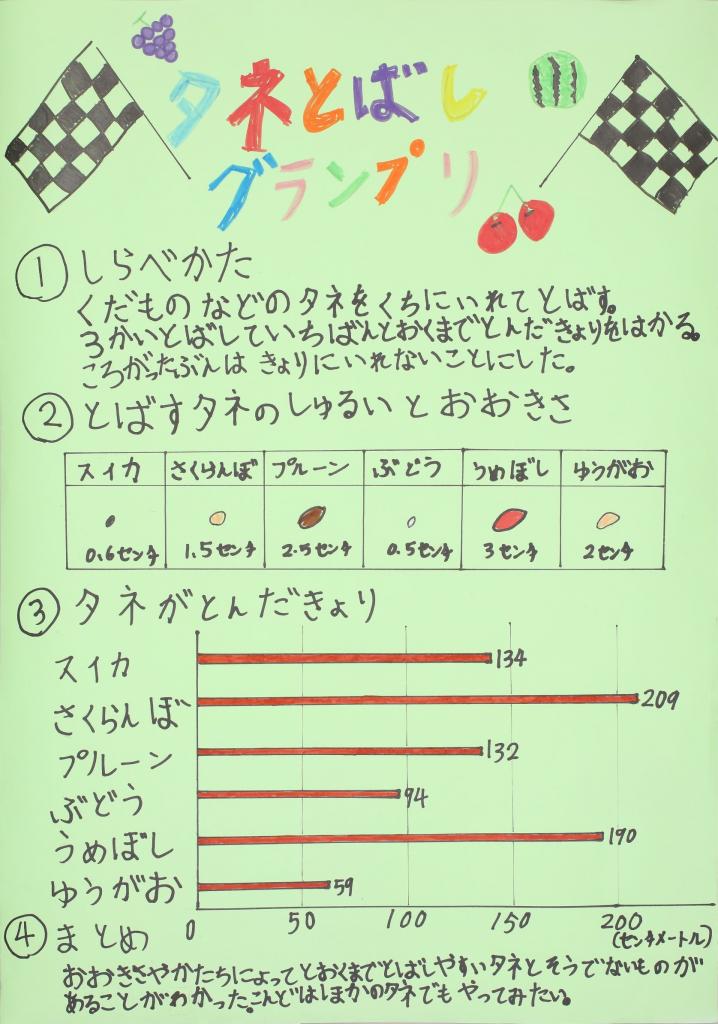 タネとばし
グランプリ
① しらべかた
くだものなどのタネをくちにいれてとばす。
3かいとばしていちばんとおくまでとんだきょりをはかる。
ころがったぶんはきょりにいれないことにした。
② とばすタネのしゅるいとおおきさ
スイカ さくらんぼ プルーン ぶどう うめぼし ゆうがお
0.6センチ 1.5センチ 2.5センチ 0.5センチ 3センチ 2センチ
③ タネがとんだきょり
スイカ 134
さくらんぼ 209
プルーン 132
ぶどう 94
うめぼし 190
ゆうがお 59
0 50 100 150 200
(センチメートル)
④ まとめ
おおきさやかたちによってとおくまでとばしやすいタネとそうでないものが
あることがわかった。こんどはほかのタネでもやってみたい。